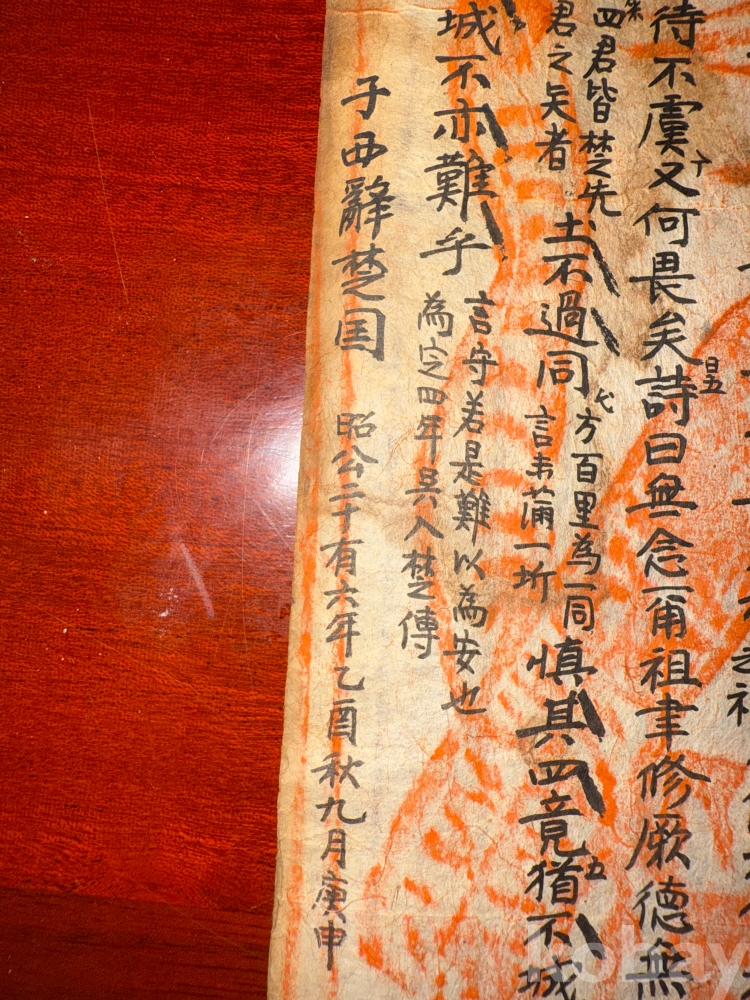 待不虞又何畏矣詩曰無念爾祖聿修厥德無
四君皆楚先
君之矣者
土不過同
方百里為一同
言未滿一圻
慎其四竟猶不城
城不亦難乎
言守若是難以為安也
為定四年吳入楚傳
子西辭楚国 昭公二十有六年乙酉秋九月庚申
kobay